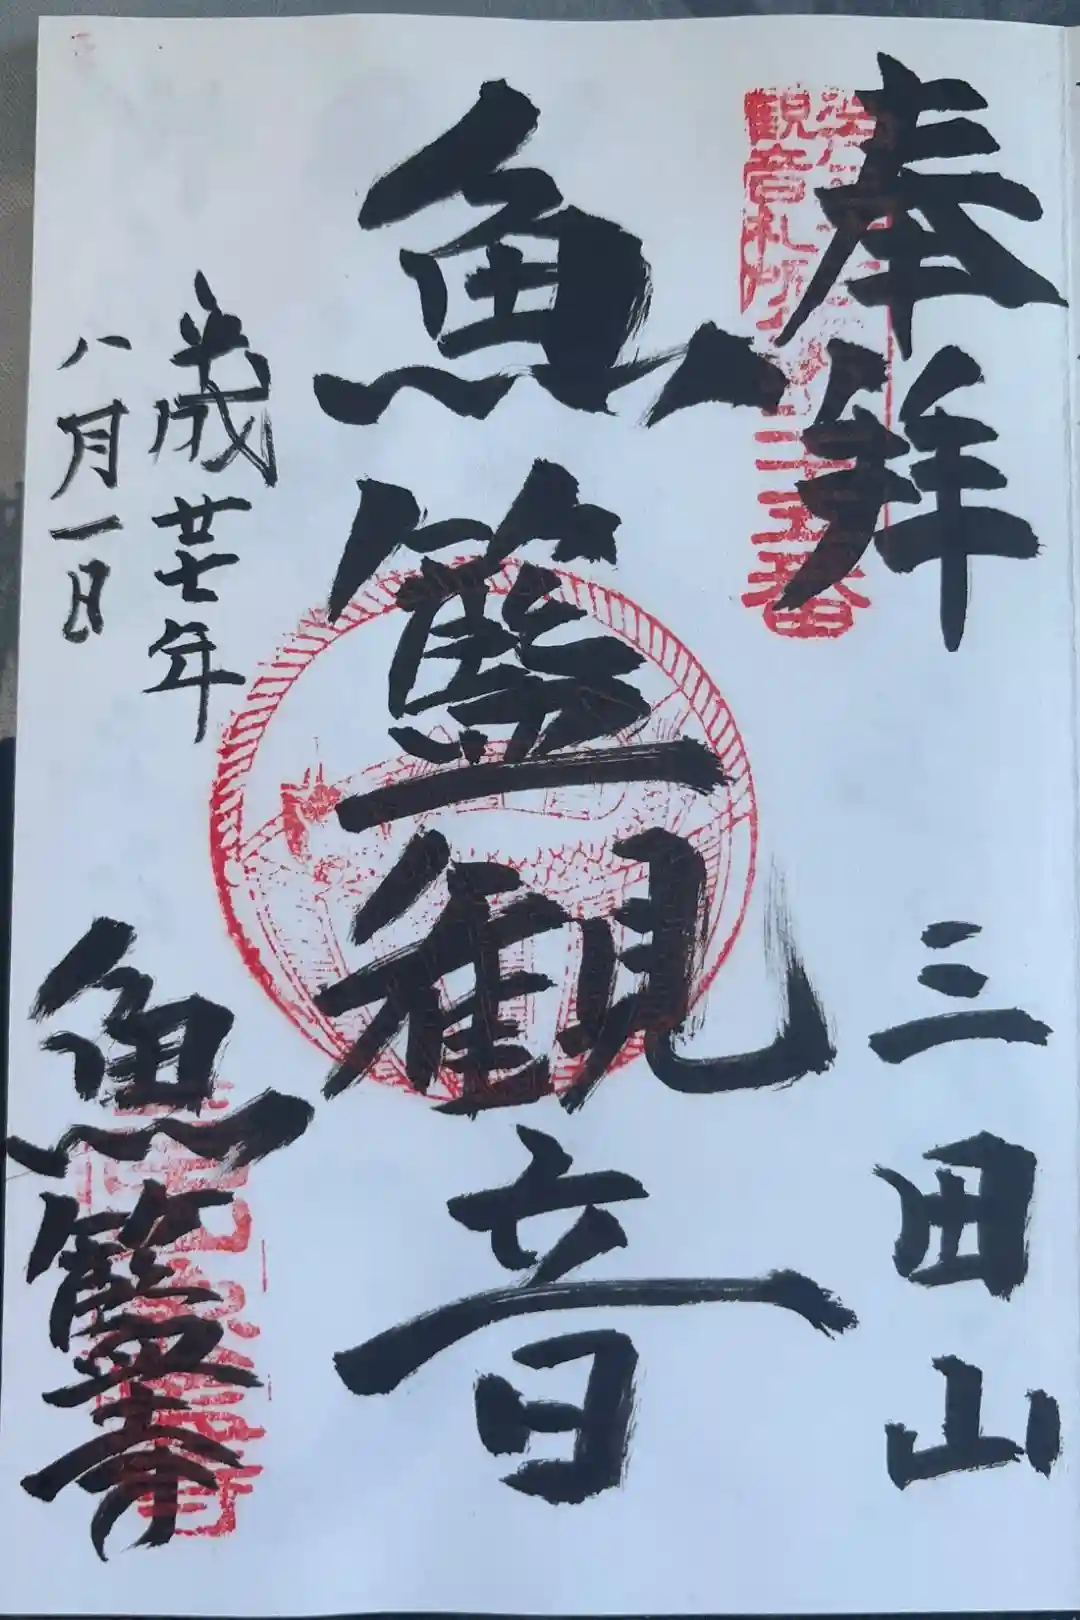 奉拝
三田山
観音札所
二十五番
魚籃観音
平成廿七年
八月一日
魚籃寺